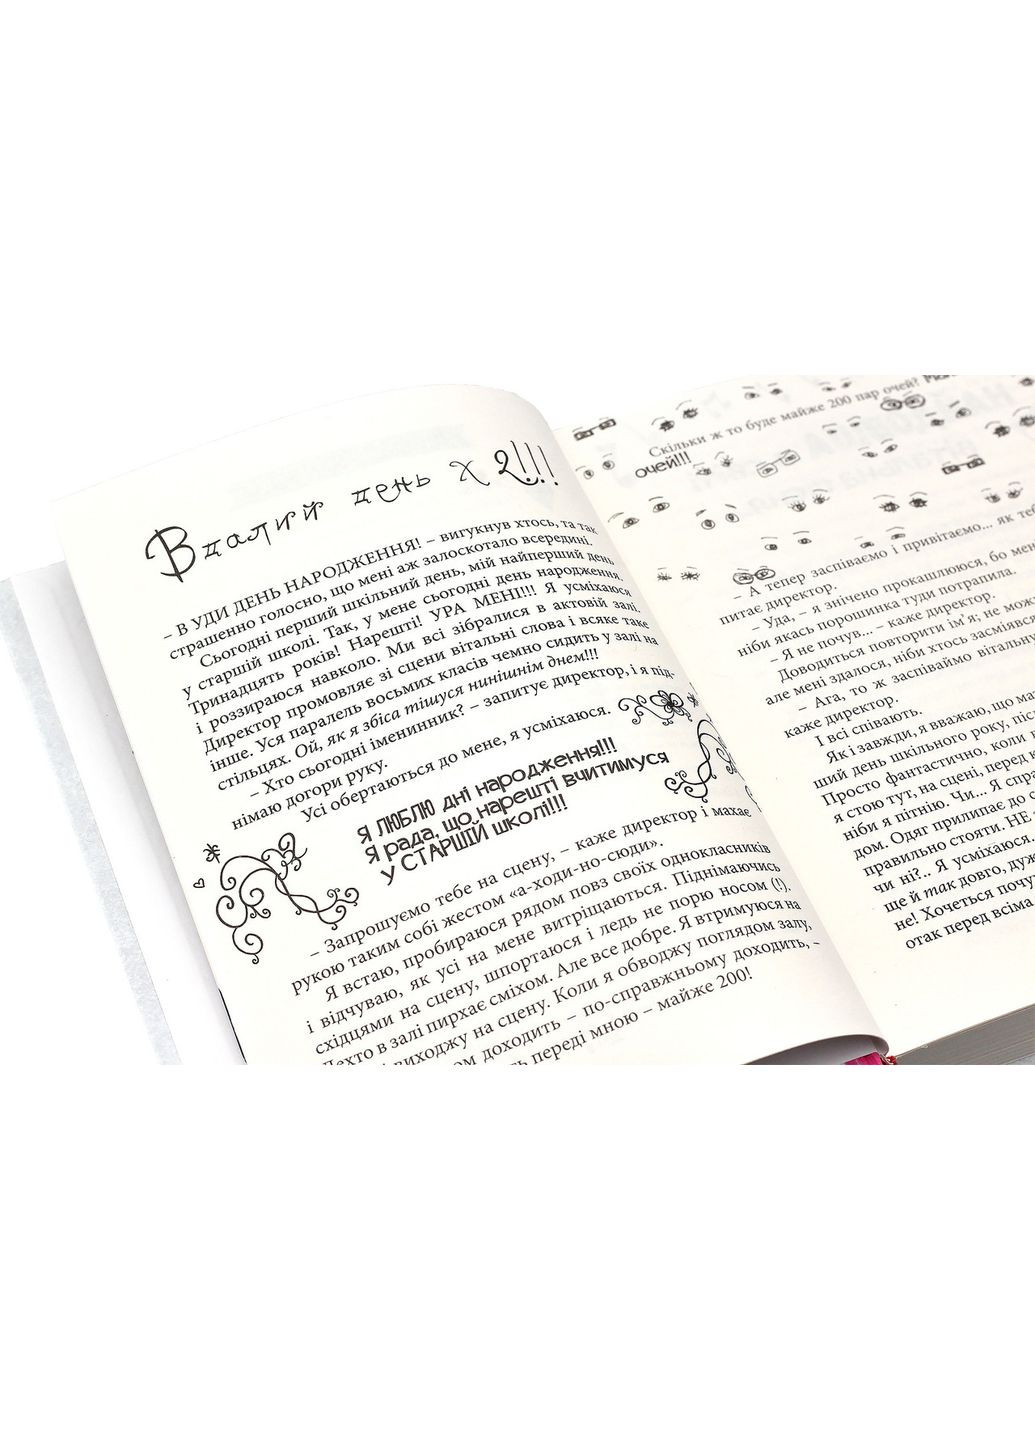 Вдалий день х 2!!!
– В УДИ ДЕНЬ НАРОДЖЕННЯ! – вигукнув хтось, та так
страшенно голосно, що мені аж залоскотало всередині.
Сьогодні перший шкільний день, мій найперший день
у старшій школі. Так, у мене сьогодні день народження.
Тринадцять років! Нарешті! УРА МЕНІ!!! Я усміхаюся
і роззираюся навколо. Ми всі зібралися в актовій залі.
Директор промовляє зі сцени вітальні слова і всяке таке
інше. Уся паралель восьмих класів чемно сидить у залі на
стільцях. Ой, як я збіса тішуся нинішнім днем!!!
– Хто сьогодні іменинник? – запитує директор, і я під-
німаю догори руку.
Усі обертаються до мене, я усміхаюся.
Я ЛЮБЛЮ дні народження!!!
Я рада, що нарешті вчитимуся
У СТАРШІЙ школі!!!
– Запрошуємо тебе на сцену, – каже директор і махає
рукою таким собі жестом «а-ходи-но-сюди».
Я встаю, пробираюся рядом повз своїх однокласників
і відчуваю, як усі на мене витріщаються. Піднімаючись
східцями на сцену, шпортаюся і ледь не порю носом (!).
Дехто в залі пирхає сміхом. Але все добре. Я втримуюся на
виходжу на сцену. Коли я обводжу поглядом залу,
доходить – по-справжньому доходить, –
переді мною – майже 200!
Скільки ж то буде майже 200 пар очей?
очей!!!
– А тепер заспіваємо і привітаємо... як
питає директор.
– Уда, – я знічено прокашлююся, бо
ніби якась порошинка туди потрапила.
– Я не почув... – каже директор.
Доводиться повторити ім'я; не
але мені здалося, ніби хтось засміявся
– Ага, то ж заспіваймо
каже директор.
І всі співають.
Як і завжди, я вважаю, що
ший день шкільного року,
Просто фантастично, коли
я стою тут, на сцені, перед
ніби я пітнію. Чи... Я
дом. Одяг прилипає до
правильно стояти. НЕ
чи ні?.. Я усміхаюся.
ще й так довго,
не! Хочеться
отак перед всіма